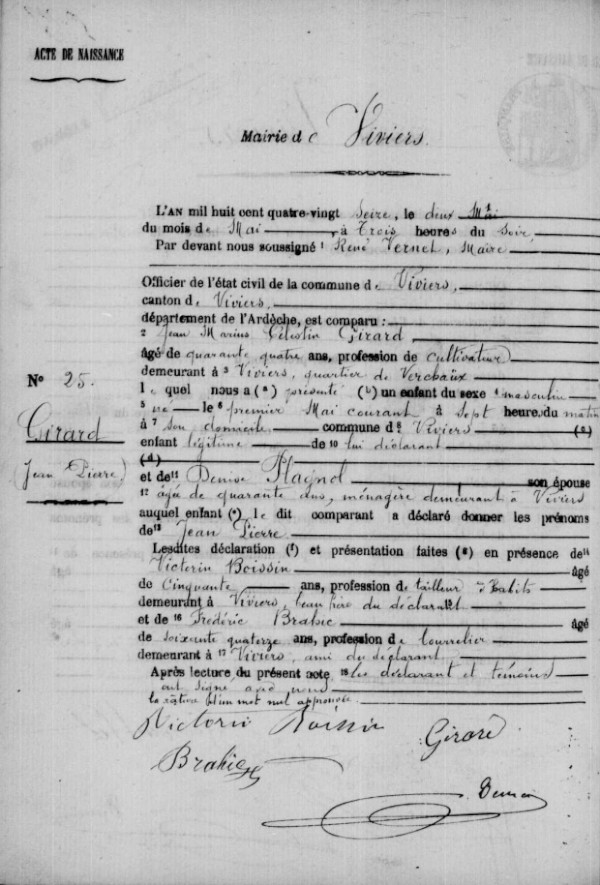 ACTE DE NAISSANCE
Mairie de Viviers.
L'AN mil huit cent quatre-vingt Seize, le deux Mai
du mois de Mai, à Trois heures du Soir,
Par devant nous soussigné 1 René Vernet, Maire
Officier de l'état civil de la commune de Viviers,
canton de Viviers,
département de l'Ardèche, est comparu :
2 Jean Marius Célestin Girard
âgé de quarante quatre ans, profession de cultivateur
demeurant à 3 Viviers, quartier de Verchaüx
le quel nous a (a) présenté (b) un enfant du sexe 4 masculin
5 né le 6 premier Mai courant à Sept heures du matin
à 7 son domicile commune d 8 Viviers (c)
enfant légitime de 10 lui déclarant
(d)
et de 11 Denise Plagnol son épouse
12 agée de quarante ans, ménagère demeurant à Viviers
auquel enfant (e) le dit comparant a déclaré donner les prénoms
de 13 Jean Pierre
Lesdites déclaration (f) et présentation faites (g) en présence de 14
Victorin Boissin âgé
de Cinquante ans, profession de tailleur d'habits
demeurant à Viviers, beau frère du déclarant
et de 16 Frédéric Brahic âgé
de soixante quatorze ans, profession de bourrelier
demeurant à 17 Viviers, ami du déclarant
Après lecture du présent acte 18 les déclarant et témoins
ont signé avec nous
la rature d'un mot nul approuvée
Victorin Boissin
Girard
Brahic
N° 25.
Girard
(Jean Pierre)